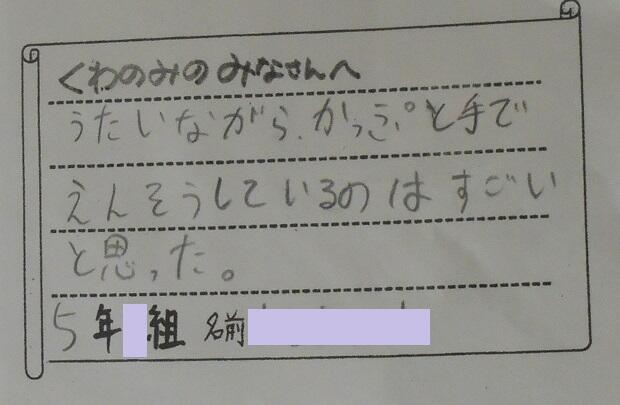 くわのみのみなさんへ
うたいながら、かっぷと手で
えんそうしているのはすごい
と思った。
5年 組 名前